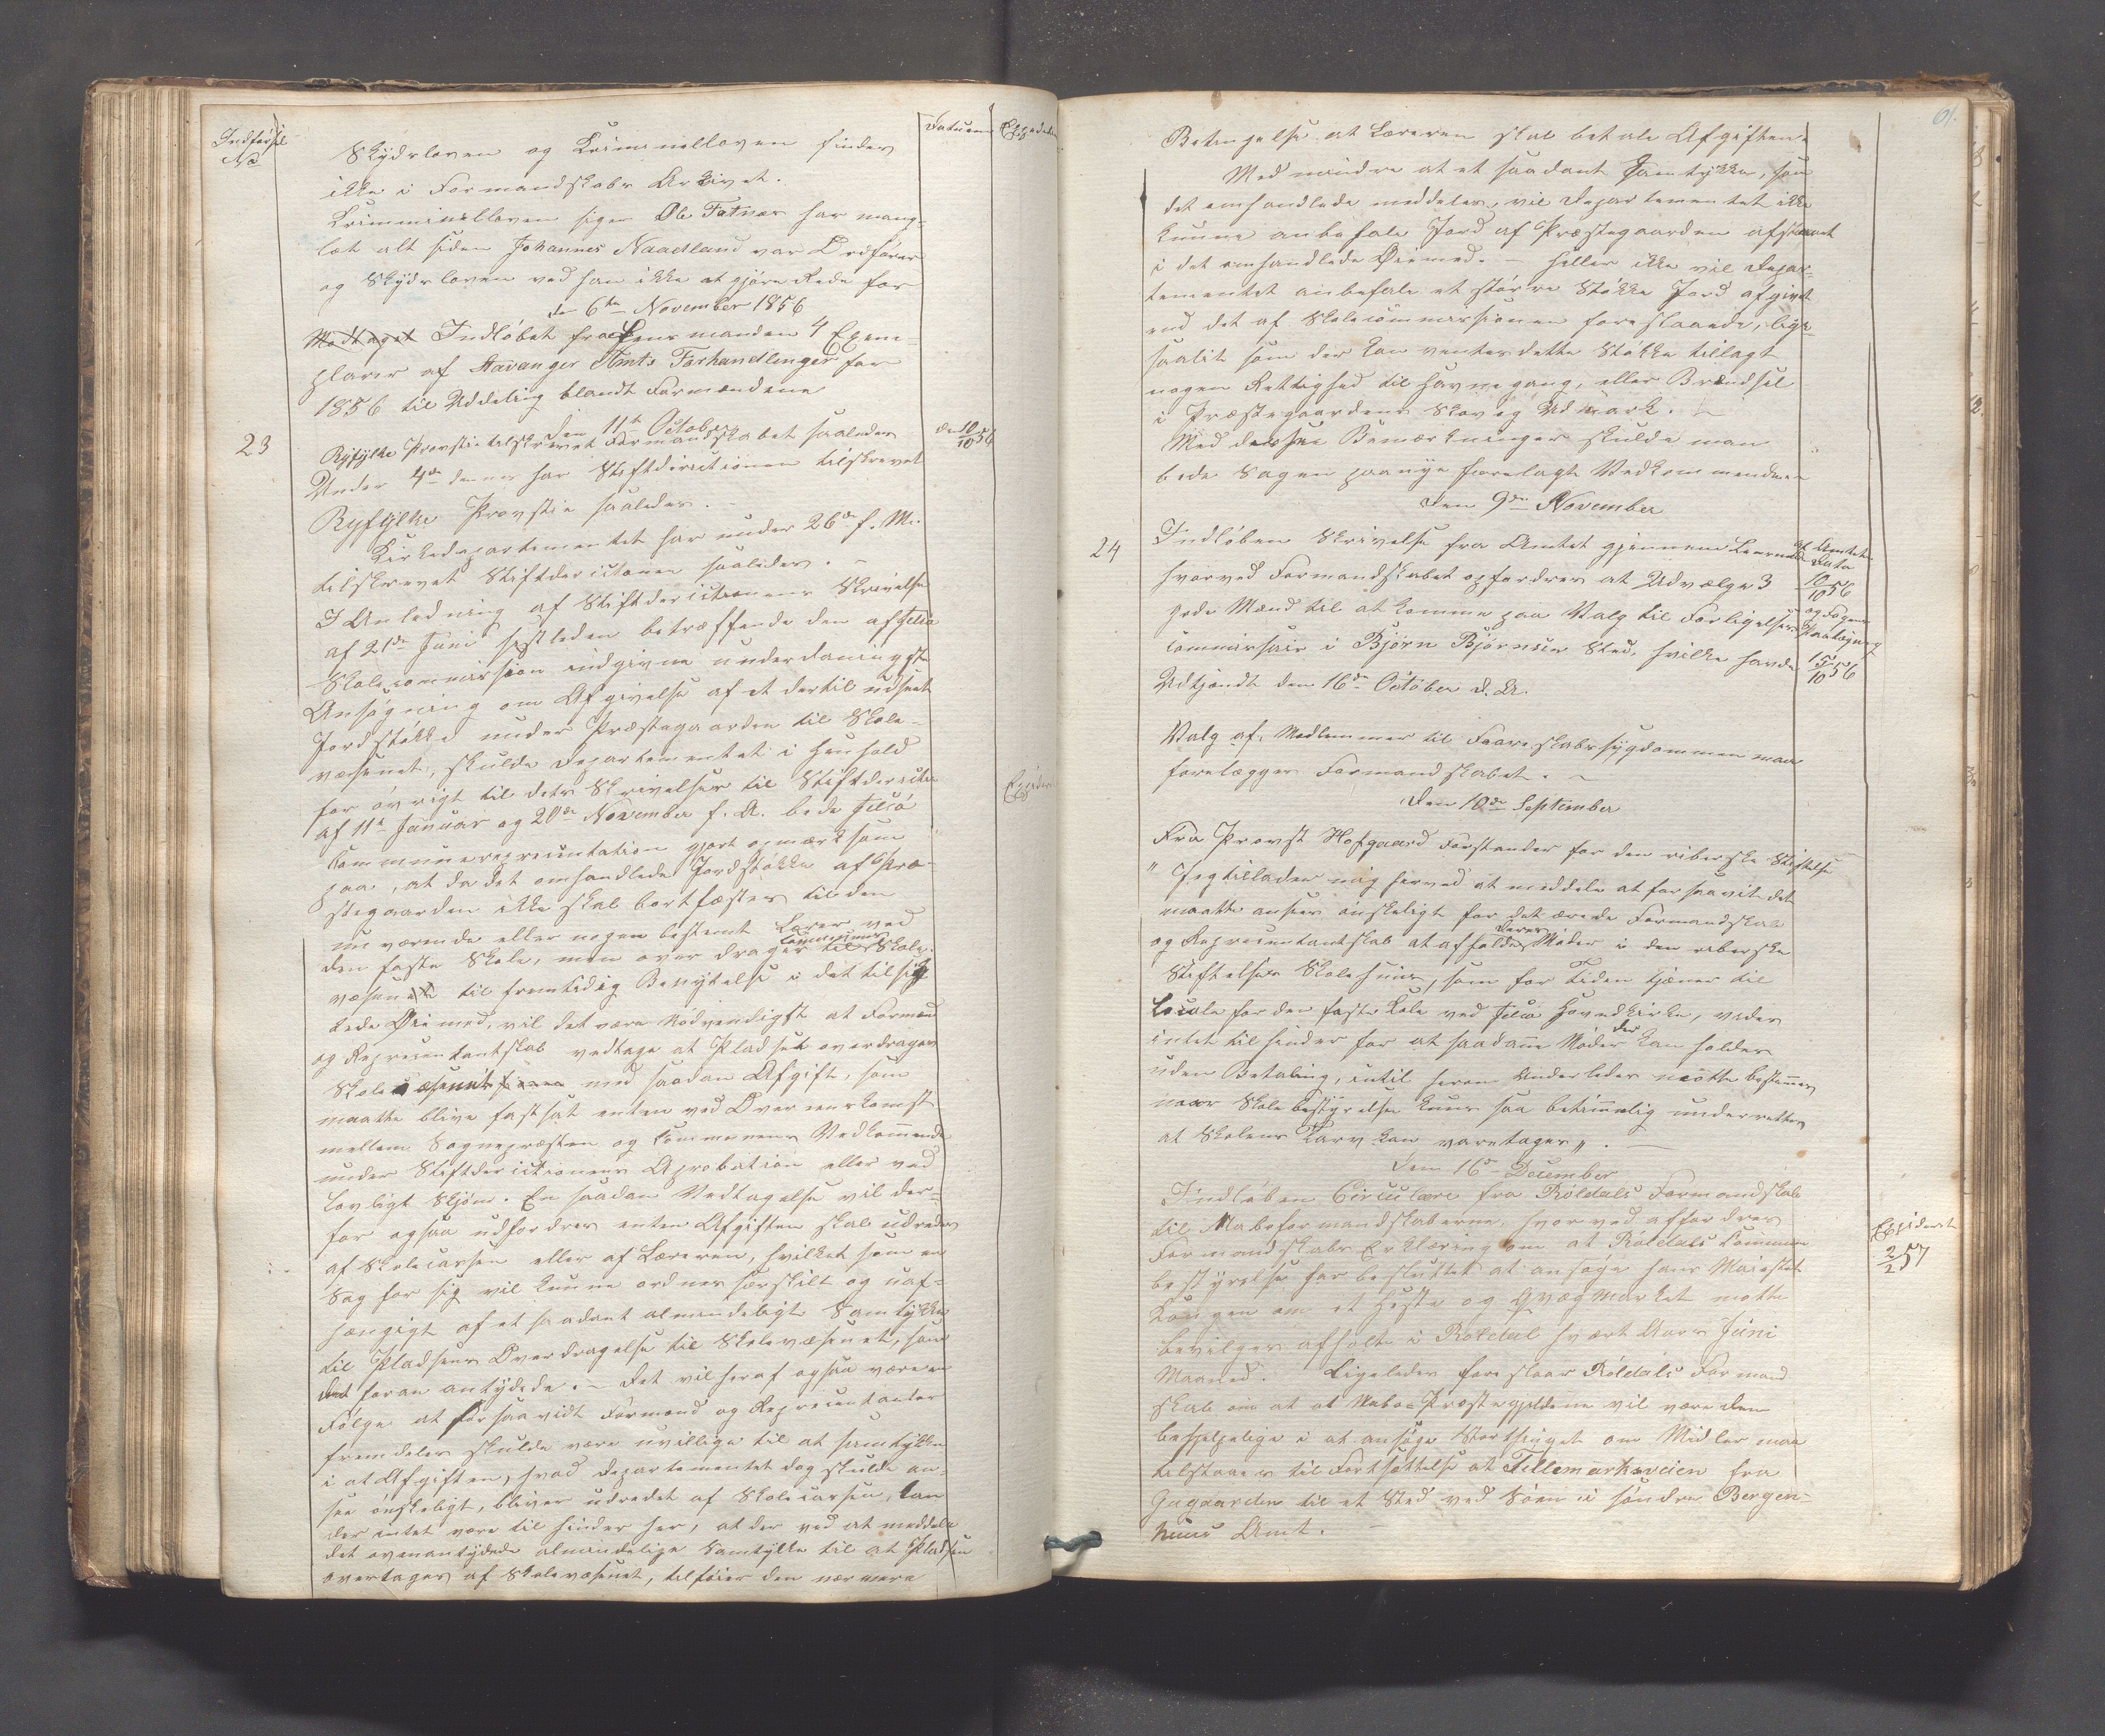 Indførsel
No
Datum
Expededer
Skydsloven og Kriminelloven findes
ikke i Formandskabs Arkivet.
Krimminelloven siger Ole Fatnes har mang-
let alt siden Johannes Naadland var Ordfører
og Skydsloven ved han ikke at gjøre Rede for
den 6te November 1856
Modtaget Indløbet fra Lensmanden 4 Exem-
plarer af Stavanger Amts Forhandlinger for
1856 til Uddeling blandt Formændene
den 11te October
23
Ryfylke Provstie tilskrevet Formandskabet saaledes
den 10/10 56
Under 4de dennes har Stiftdirectionen tilskrevet
Ryfylke Provstie saaledes. -
Kirkedepartementet har under 26de f. M.
tilskrevet Stiftderictonen saaledes. -
I Anledning af Stiftderictionens Skrivelse
af 21de Juni sistleden betræffende den af Jelsø
Skolecommission indgivne underdanigste
Ansøgning om Afgivelse af et dertil udseet
Jordstøkke under Præstegaarden til Skole-
væsenet, skulde Departementet i Henhold
for øvrigt til dets Skrivelser til Stiftderictio
af 11te Januar og 20de November f. A. bede Jelsø
Communerepresentation gjort opmærksom
paa, at da det omhandlede Jordstøkke af Præ-
stegaarden ikke skal bortfæstes til den
nu værende eller nogen bestemt Lærer ved
den faste Skole, men over drages til Communens Skole-
væsenet til fremtidig Benyttelse i det tilsig
tede Øiemed, vil det være Nødvendigst at Formænd
og Representantskab vedtage at Pladset overdrages
Skolevæsenet med saadan Afgift, som
maatte blive fastsat enten ved Overenskomst
mellem Sognepræsten og Communens Vedkommende
under Stiftderictionens Aprobation eller ved
Lovligt Skjøn. En saadan Vedtagelse vil der-
for ogsaa udfordres enten Afgiften skal udredes
af Skolecassen eller af Læreren, hvilket som en
Sag for sig vil kunne ordnes særskilt og uaf-
hængigt af et saadant almindeligt Samtykke
til Pladsens Overdragelse til Skolevæsenet, som
det foran antydede. - Det vil heraf ogsaa være en
Følge at forsaavidt Formænd og Representanter
fremdeles skulde være uvillige til at samtykke
i at Afgiften, hvad Departementet dog skulde an-
see ønskeligt, bliver udredet af Skolecassen, kan
der intet være til hinder her, at der ved at meddele
det ovenantydede almindelige Samtykke til at Pladsen
overtages af Skolevæsenet, tilføies den nærmere
Expideret
61.
Betingelse at Læreren skal betale Afgiften.
Med mindre at et saadant Samtykke, som
det omhandlede meddeles, vil Departementet ikke
kunne anbefale Jord af Præstegaarden afstaaet
i det omhandlede Øiemed. - Heller ikke vil Depar-
tementet anbefale et større Støkke Jord afgivet
end det af Skolecommissionen foreslaaede, lige-
saalit som der kan ventes dette Støkke tillagt
nogen Rettighed til Havnegang, eller Brændsel
i Præstegaardens Skov og Udmark. -
Med disse Bemærkninger skulde man
bede Sagen paanye forelagte Vedkommende
Den 9de November
24
Indløben Skrivelse fra Amtet gjennem Lensmand
hvorved Formandskabet opfordres at Udvælge 3
gode Mænd til at komme paa Valg til Forligelses
commissair i Bjørn Bjørnsens Sted, hvilke havde
Udtjendt den 16de October d. A.
af Amtets
Data
10/10 56
og Fogens
Paategning
15/10 56
Valg af Medlemmer til Faareskabsygdommen maa
forelægges Formandskabet. -
Den 10de September
Fra Provst Hofgaard Forstander for den riberske Stiftelse
" Jeg tillader mig herved at meddele at forsaavit det
maatte ansees ønskeligt for det ærede Formandskab
og Representantskab at afholde Deres Møder i den riberske
Stiftelses Skolehuus, som for Tiden tjener til
Locale for den faste Skole ved Jelsø Hovedkirke, vides
intet til hinder for at saadane Møder der kan holdes
uden Betaling, intil herom Anderledes måtte bestemes
naar Skolebestyrelsen kuns saa betimmelig underrettes
at Skolens Tarv kan varetages". -
Den 16de December
Indløben Circulære fra Røldals Formandskab
til Naboformandskaberne, hvorved affordres
Formandskabs Erklæring om at Røldals Commune
bestyrelse har besluttet at ansøge hans Majestet
Kongen om et Heste og Qvægmarket motte
bevilges afholte i Røldal hvært Aars Juni
Maaned. Ligeledes foreslaar Røldals Formand
skab om at at Nabo-Præstegjeldene vil være dem
behjelpelige i at ansøge Storthinget om Midler maa
tilstaaes til Fortsættelse at Tellemarksveien fra
Gugaarden til et Sted ved Søen i søndre Bergen-
huus Amt. -
Expideret
2/2 57